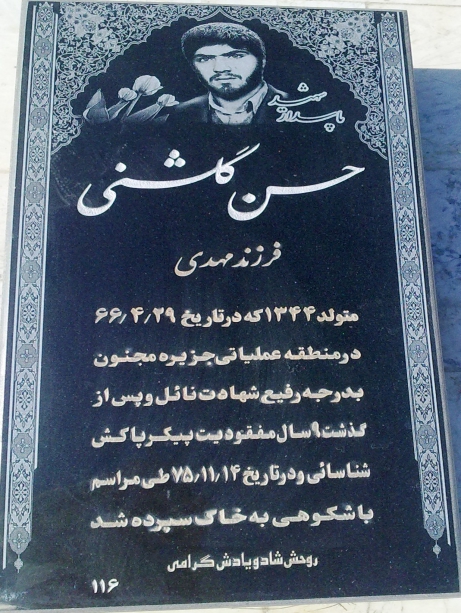 شهید
پاسدار
حسن گلشنی
فرزند مهدی
متولد ۱۳۴۴ که در تاریخ ۶۶/۴/۲۹
در منطقه عملیاتی جزیره مجنون
بدرجه رفیع شهادت نائل و پس از
گذشت ۹ سال مفقودیت پیکر پاکش
شناسائی و در تاریخ ۷۵/۱۱/۱۴ طی مراسم
باشکوهی به خاک سپرده شد
روحش شاد و یادش گرامی
۱۱۶